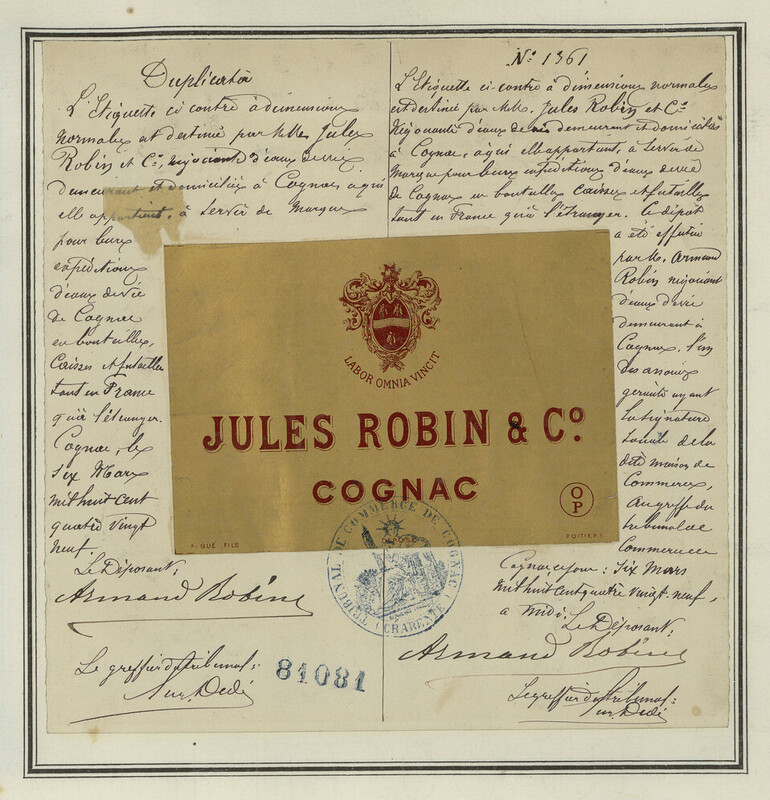 Duplicata
L'Etiquette ci contre à dimensions
normales est destinée par MMrs Jules
Robin et Co, négociants d'eaux de vie
demeurant et domiciliés à Cognac, a qui
elle appartient, à servir de Marque
pour leurs
expéditions
d'eaux de vie
de Cognac
en bouteilles,
Caisses et futailles
tant en France
qu'à l'étranger.
Cognac, le
six Mars
mil huit cent
quatre vingt
neuf.
Le Déposant;
Armand Robin
Le greffier du tribunal:
81081
No 1361
L'Etiquette ci contre à dimensions normales
est destinée par MMrs Jules Robin et Co
Négociants d'eaux de vie demeurant et domiciliés
à Cognac, a qui elle appartient, à servir de
Marque pour leurs expéditions d'eaux de vie
de Cognac en bouteilles caisses et futailles
tant en France qu'à l'étranger. Ce dépôt
a été effectué
par M. Armand
Robin négociant
d'eaux de vie
demeurant à
Cognac, l'un
des associés
gérants ayant
la signature
sociale de la
dite maison de
Commerce,
au greffe du
tribunal de
Commerce de
Cognac ce jour: six Mars
mil huit cent quatre vingt-neuf,
a midi.
Le Déposant:
Armand Robin
Le greffier du tribunal:
LABOR OMNIA VINCIT
JULES ROBIN & Co.
COGNAC
OP
POITIERS
TRIBUNAL DE COMMERCE DE COGNAC
DÉPOSÉ
(CHARENTE)